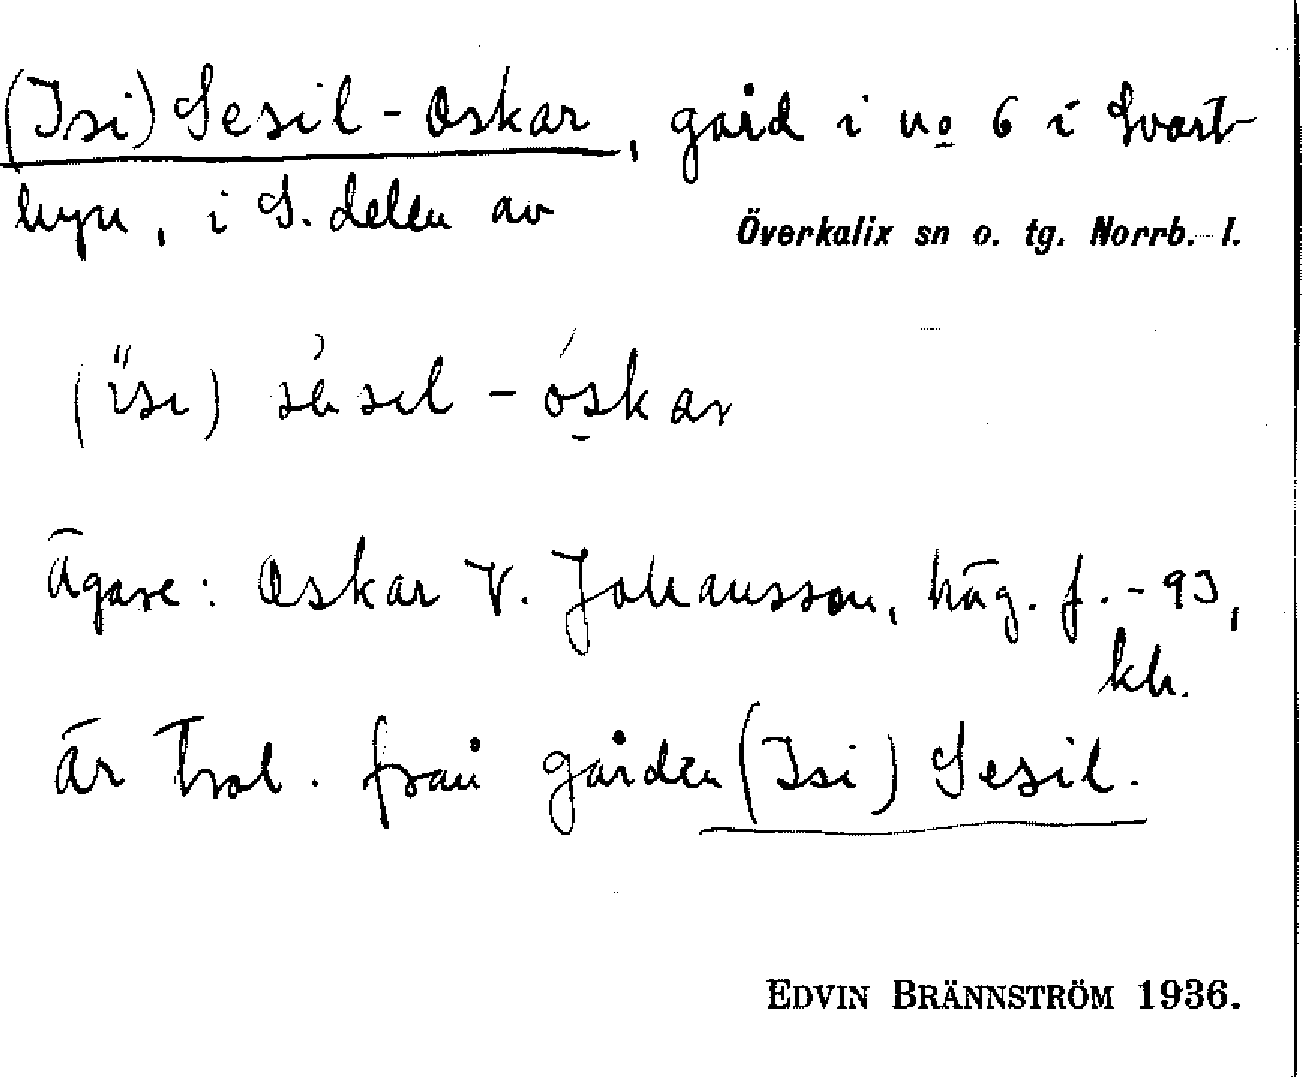 (Isi) Sesil-Oskar, gård i no 6 i Svart-
byn, i S. delen av
Överkalix sn o. tg. Norrb. l.
(ïsi) sèsil - óskar
Ägare: Oskar V. Johansson, häg. f. -93,
kh.
är trol. från gården (Isi) Sesil.
EDVIN BRÄNNSTRÖM 1936.